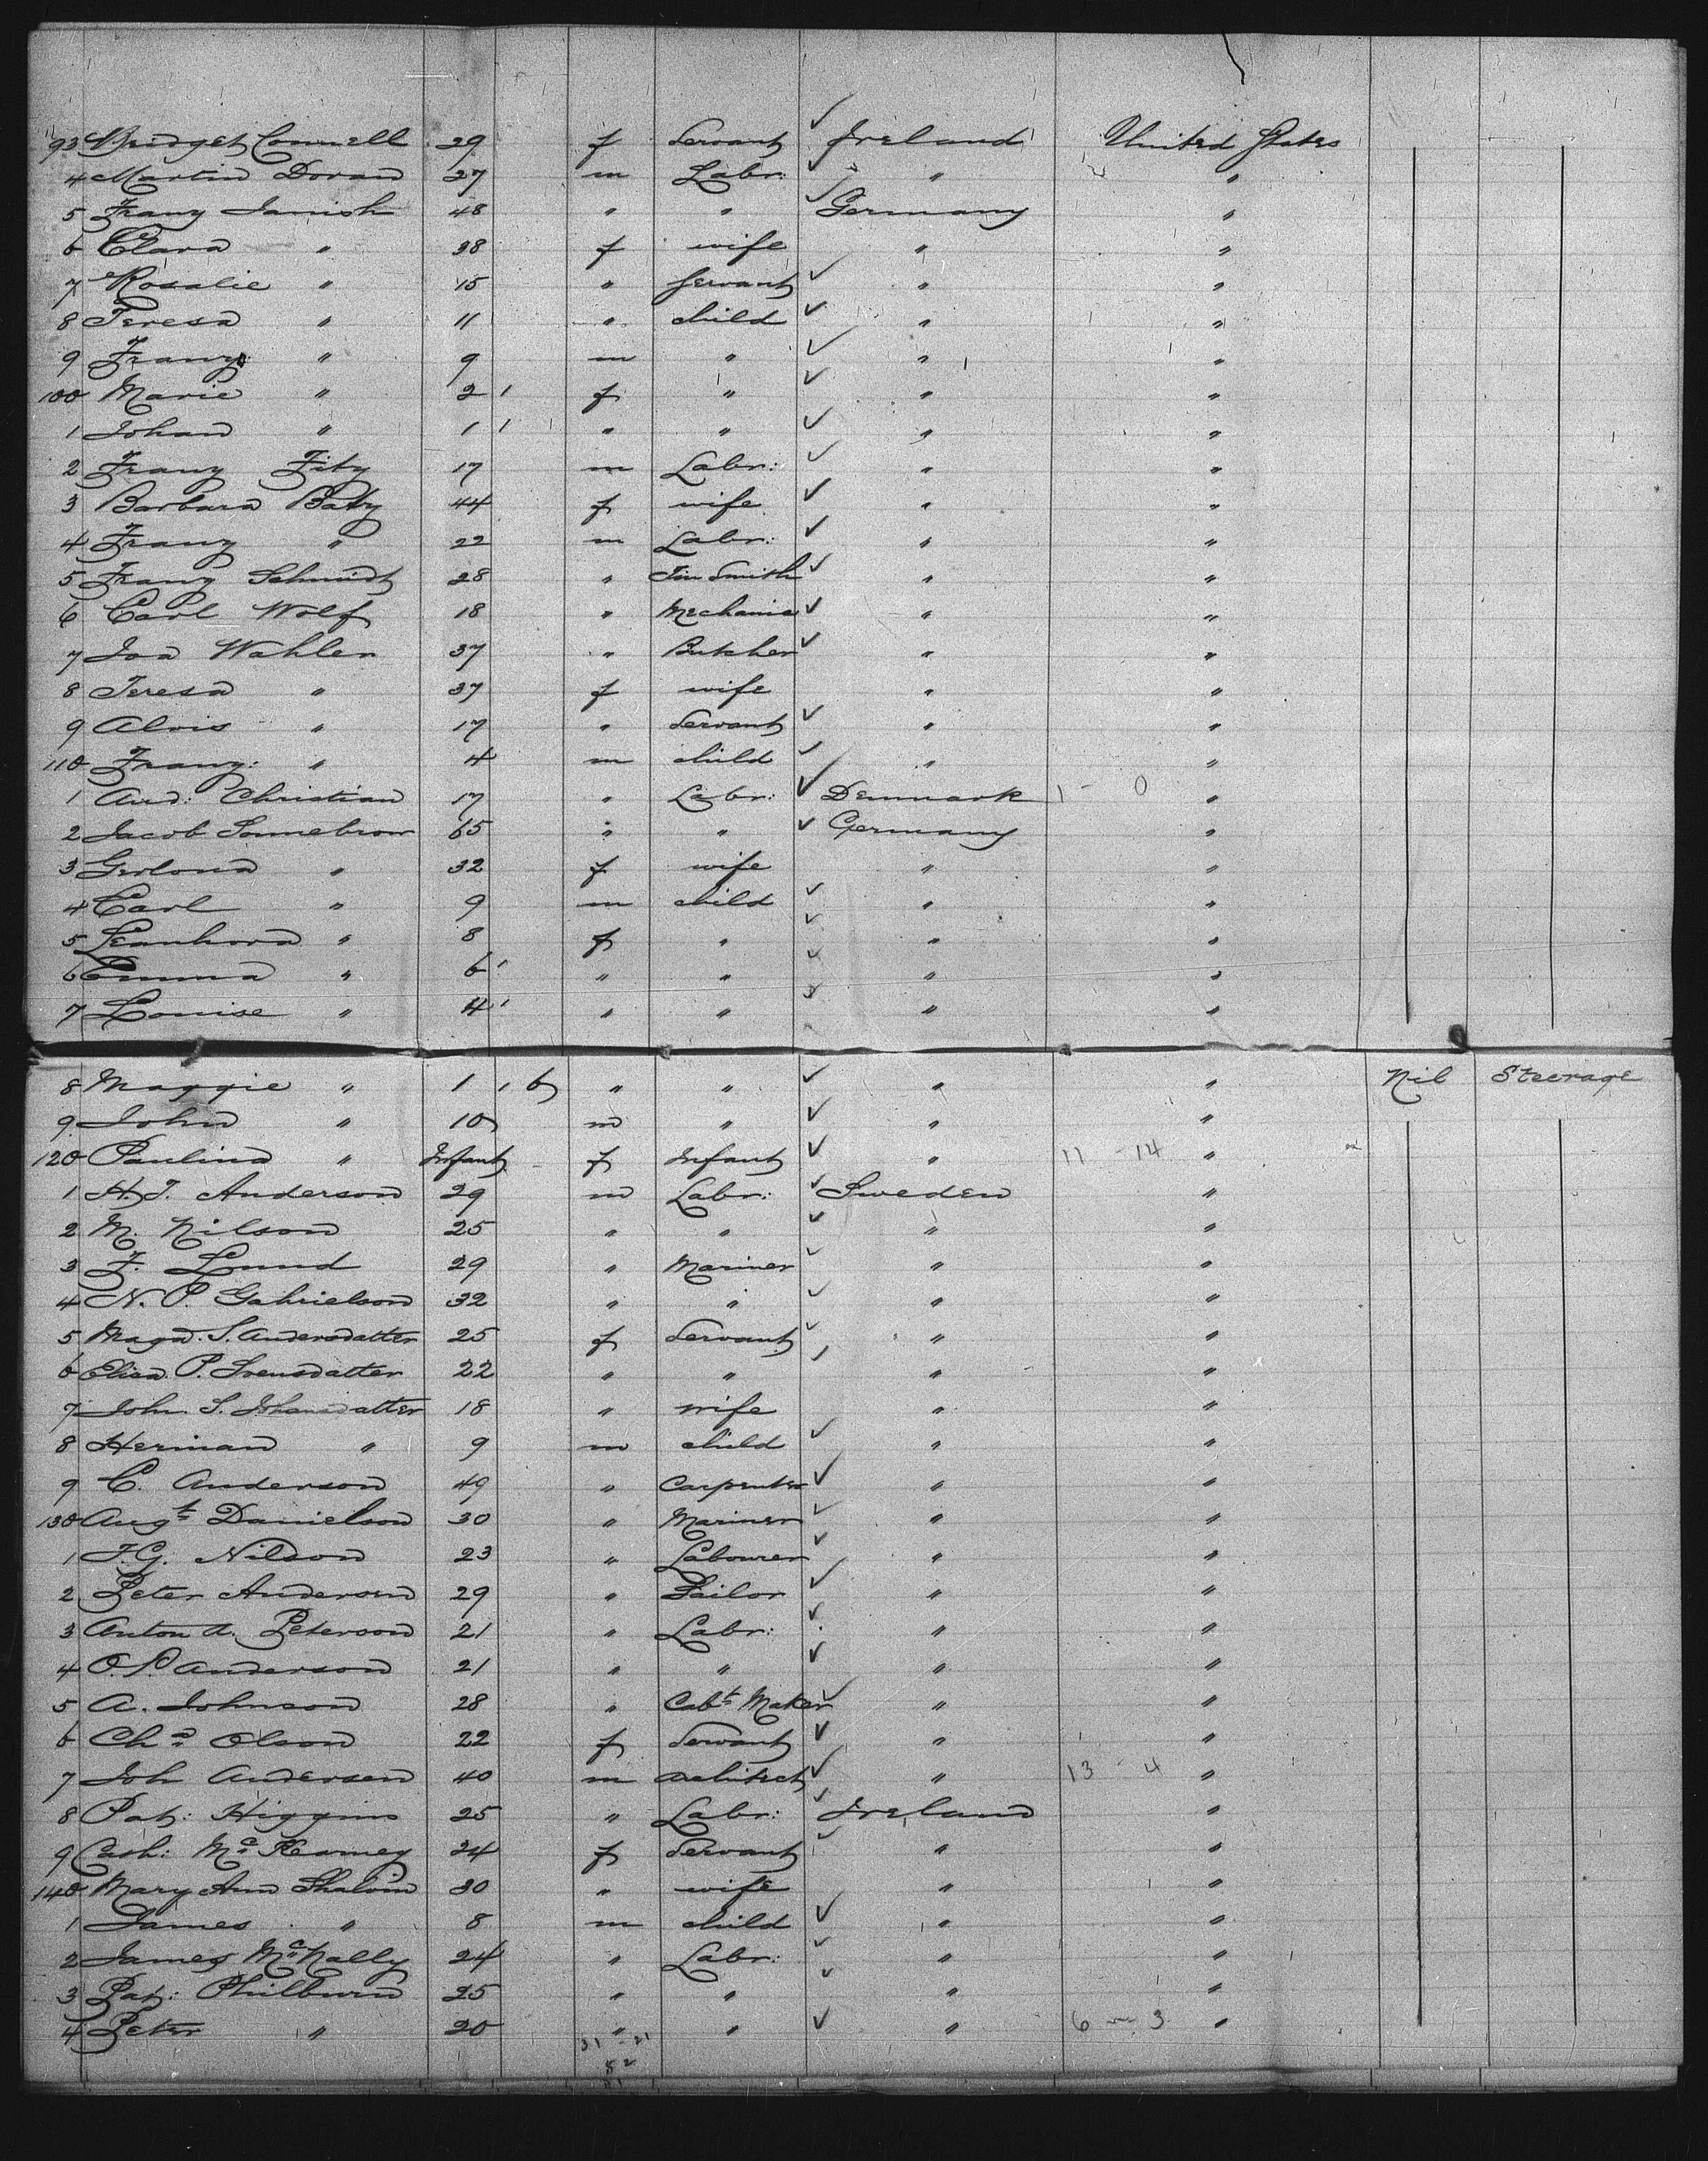 93 Bridget Connell 29 f Servant Ireland United States
4 Martin Doran 27 m Labr: " "
5 Franz Janish 48 " " Germany "
6 Clara " 38 f wife " "
7 Rosalie " 15 " servant " "
8 Teresa " 11 " child " "
9 Franz " 9 m " " "
100 Marie " 2 f " " "
1 Johan " 1 " " " "
2 Franz Fitz 17 m Labr: " "
3 Barbara Batz 44 f wife " "
4 Franz " 22 m Labr: " "
5 Franz Schmidt 28 " Tin Smith " "
6 Carl Wolf 18 " Mechanic " "
7 Joa Wahler 37 " Butcher " "
8 Teresa " 37 f wife " "
9 Alois " 17 " Servant " "
110 Franz: " 4 m child " "
1 And: Christian 17 " Labr: Denmark 1 - 0 "
2 Jacob Sonnebrow 65 " " Germany "
3 " 32 f wife " "
4 Carl " 9 m child " "
5 Leanhora " 8 f " " "
6 Emma " 6 " " " "
7 Louise " 4 " " " "
8 Maggie " 1 " " " " Nil Steerage
9 John " 10 m " " "
120 Paulina " Infant f Infant " 11 - 14 "
1 H. J. Anderson 29 m Labr: Sweden "
2 M. Nilson 25 " " " "
3 F. Lund 29 " Mariner " "
4 N. P. Gabrielson 32 " " " "
5 Magd. S. Andersdatter 25 f Servant " "
6 Elisa. P. Svensdatter 22 " " " "
7 Joh. S. Johansdatter 18 " wife " "
8 Herman " 9 m child " "
9 C. Anderson 49 " Carpenter " "
130 Augt Danielson 30 " Mariner " "
1 J. G. Nilson 23 " Labourer " "
2 Peter Anderson 29 " Sailor " "
3 Anton A. Peterson 21 " Labr: " "
4 O. P. Anderson 21 " " " "
5 A. Johnson 28 " Cabt Maker " "
6 Chs Olson 22 f Servant " "
7 Joh Andersen 40 m Architect " 13 - 4 "
8 Pat: Higgins 25 " Labr: Ireland "
9 Cath: Mc Kearney 24 f Servant " "
140 Mary Ann 30 " wife " "
1 James " 8 m child " "
2 James McNally 24 " Labr: " "
3 Pat: Philbin 25 " " " "
4 Peter " 20 " " " 6 - 3 "
31 - 21
52